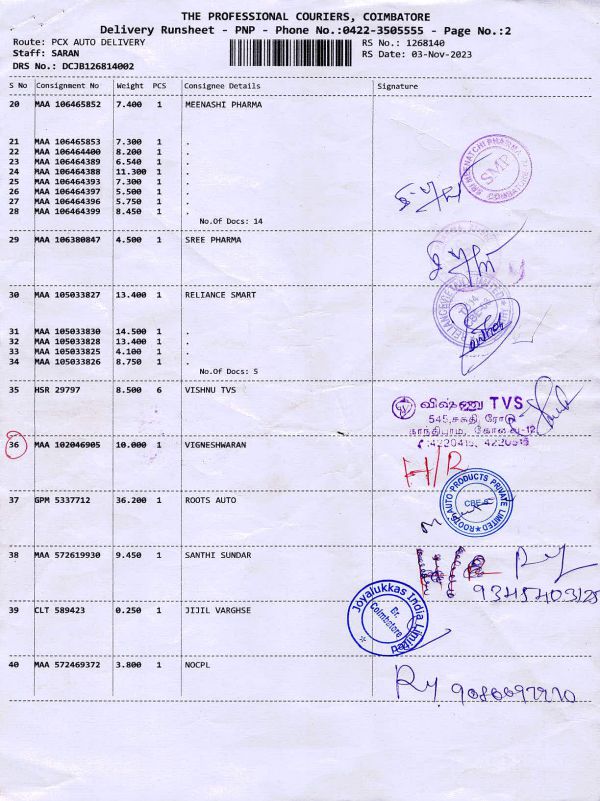 THE PROFESSIONAL COURIERS, COIMBATORE
Delivery Runsheet - PNP - Phone No.:0422-3505555 - Page No.:2
Route: PCX AUTO DELIVERY RS No.: 1268140
Staff: SARAN RS Date: 03-Nov-2023
DRS No.: DCJB126814002
S No Consignment No Weight PCS Consignee Details Signature
20 MAA 106465852 7.400 1 MEENASHI PHARMA
21 MAA 106465853 7.300 1 .
22 MAA 106464400 8.200 1 .
23 MAA 106464389 6.540 1 .
24 MAA 106464388 11.300 1 .
25 MAA 106464393 7.300 1 .
26 MAA 106464397 5.500 1 .
27 MAA 106464396 5.750 1 .
28 MAA 106464399 8.450 1 .
SMP
No.Of Docs: 14
29 MAA 106380847 4.500 1 SREE PHARMA
30 MAA 105033827 13.400 1 RELIANCE SMART
31 MAA 105033830 14.500 1 .
32 MAA 105033828 13.400 1 .
33 MAA 105033825 4.100 1 .
34 MAA 105033826 8.750 1 .
No.Of Docs: 5
35 HSR 29797 8.500 6 VISHNU TVS
விஷ்ணு TVS
545, சக்தி ரோடு
காந்திபுரம், கோவை-12
36 MAA 102046905 10.000 1 VIGNESHWARAN
H/R
37 GPM 5337712 36.200 1 ROOTS AUTO
ROOTS AUTO PRODUCTS PRIVATE LIMITED
38 MAA 572619930 9.450 1 SANTHI SUNDAR
9345403125
39 CLT 589423 0.250 1 JIJIL VARGHSE
Joyalukkas India Limited
Br.
Coimbatore
40 MAA 572469372 3.800 1 NOCPL